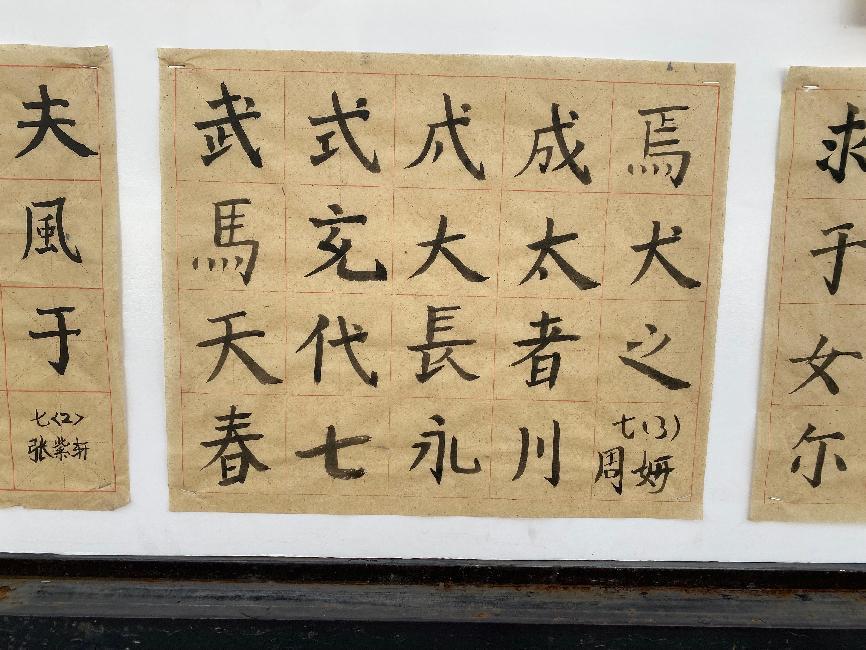 夫
風
于
七<2>
张紫轩
武式成成焉
馬充大太犬
天代長者之
春七永川
七(3)
周妍
求
于
女
尔